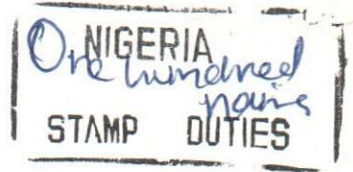 NIGERIA
One hundred
naira
STAMP DUTIES